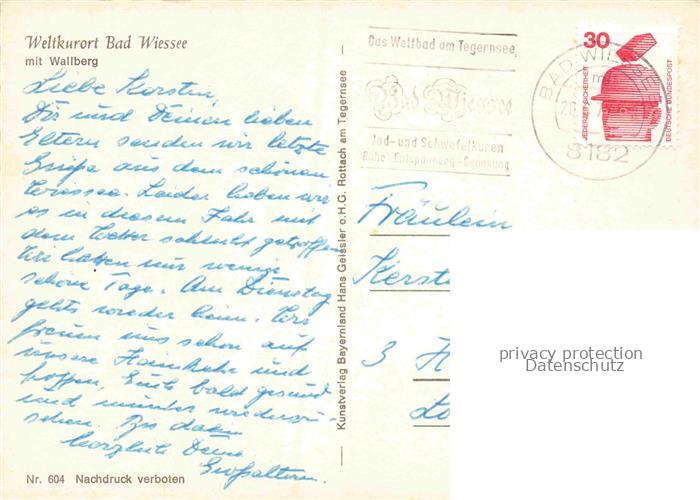 Weltkurort Bad Wiessee
mit Wallberg
Liebe Kerstin,
Dir und Deinen lieben
Eltern senden wir letzte
Grüße aus dem schönen
Wiessee. Leider haben wir
es in diesem Jahr mit
dem Wetter schlecht getroffen
Wir hatten nur wenige
schöne Tage. Am Dienstag
gehts wieder heim. Wir
freuen uns schon auf
unsere Heimkehr und
hoffen, Euch bald gesund
und munter wiederzu-
sehen. Bis dahin
herzlichst Deine
Großeltern.
Nr. 604 Nachdruck verboten
Kunstverlag Bayernland Hans Geissler o.H.G. Rottach am Tegernsee
Das Weltbad am Tegernsee
Bad Wiessee
Jod- und Schwefelkuren
Ruhe - Entspannung - Genesung
BAD WIESSEE
8182
30
JEDERZEIT SICHERHEIT
DEUTSCHE BUNDESPOST
Fräulein
Kerst
3 H
privacy protection
Datenschutz